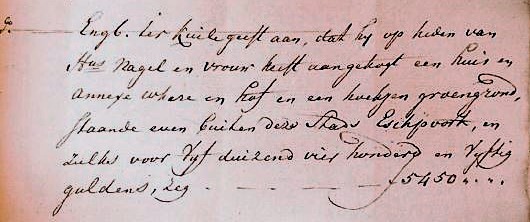 9. Engb. ter Kuile geeft aan, dat hy op heden van
Hus Nagel en vrouw heeft aangekogt een huis en
annexe where en hof en een hoekjen groengrond,
staande even buiten deze Stads Eschpoort, en
zulks voor Vyf duizend vier honderd en Vyftig
guldens, zeg - - - - 5450 " . " .